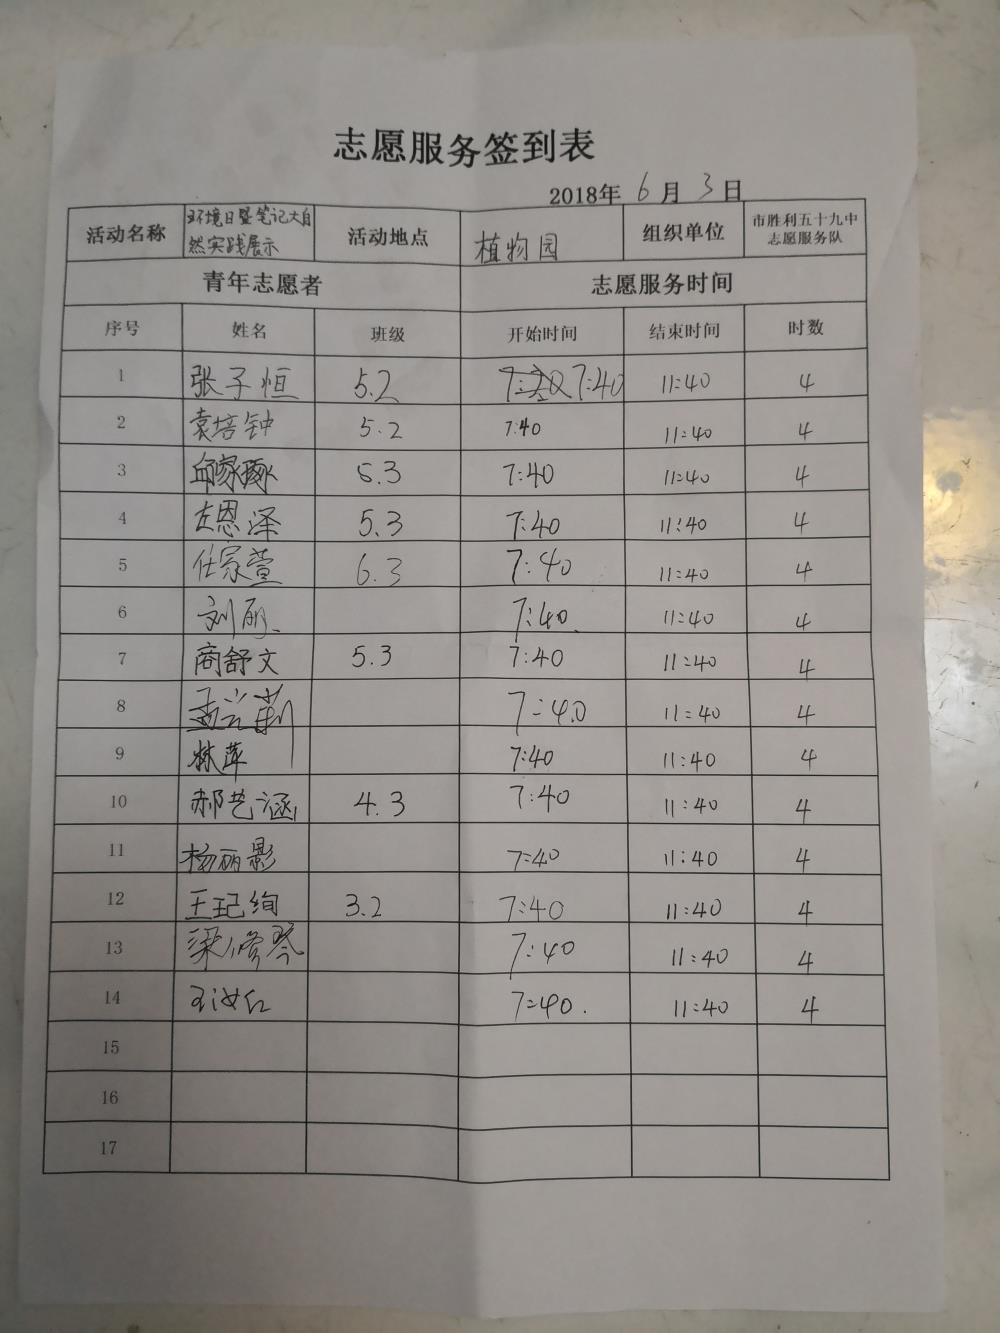 志愿服务签到表
2018年 6月 3日
活动名称 环境日暨笔记大自然实践展示 活动地点 植物园 组织单位 市胜利五十九中志愿服务队
青年志愿者 志愿服务时间
序号 姓名 班级 开始时间 结束时间 时数
1 张子恒 5.2 7:40 11:40 4
2 袁培钟 5.2 7:40 11:40 4
3 邱家琢 5.3 7:40 11:40 4
4 左恩泽 5.3 7:40 11:40 4
5 任家萱 6.3 7:40 11:40 4
6 刘丽 7:40 11:40 4
7 商舒文 5.3 7:40 11:40 4
8 孟兰莉 7:40 11:40 4
9 林萍 7:40 11:40 4
10 郝艺涵 4.3 7:40 11:40 4
11 杨丽影 7:40 11:40 4
12 王玘绚 3.2 7:40 11:40 4
13 梁修琴 7:40 11:40 4
14 王汝红 7:40 11:40 4
15
16
17